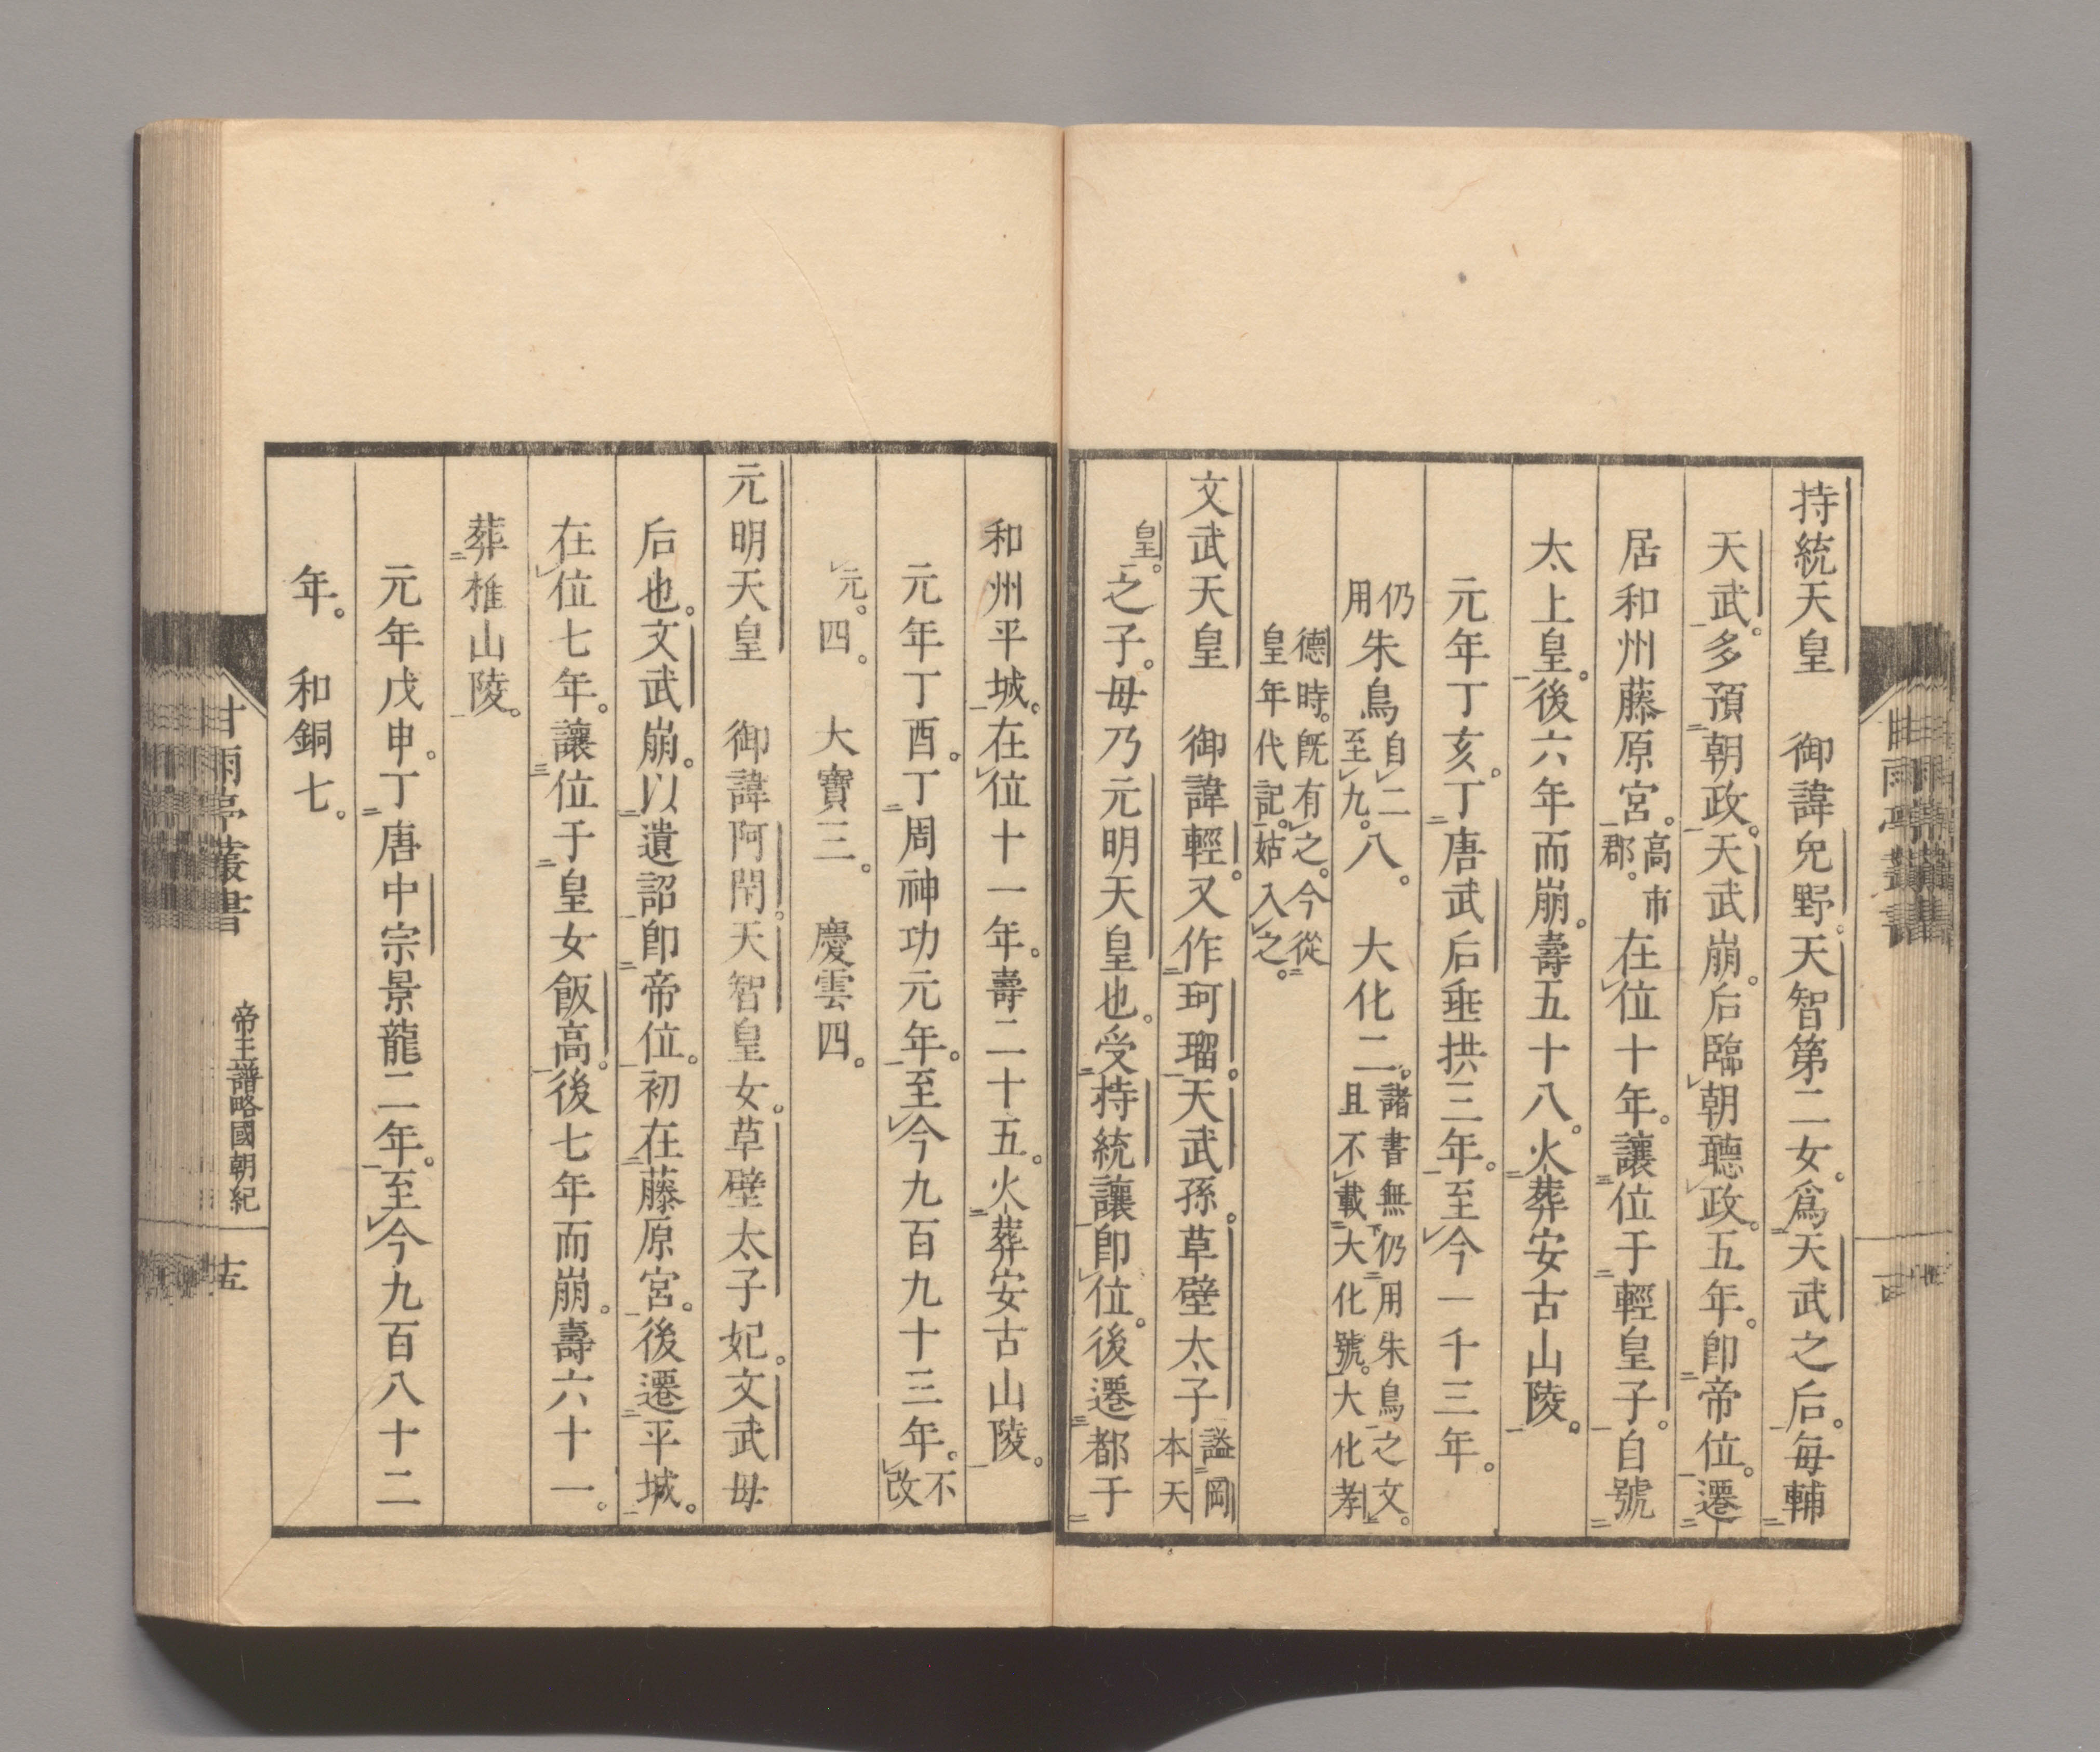 持統天皇　御諱兒野。天智第二女。爲天武之后。毎輔
天武。多預朝政。天武崩。后臨朝聽政。五年。卽帝位。遷
居和州藤原宮。高市郡。在位十年。讓位于輕皇子。自號
太上皇。後六年而崩。壽五十八。火葬安古山陵。
元年丁亥。丁唐武后垂拱三年。至今一千三年。
仍用朱鳥自二至九。八。　大化二。諸書無仍用朱鳥之文。且不載大化號。大化孝
德時。旣有之。今從皇年代記。姑入之。
文武天皇　御諱輕。又作珂瑠。天武孫。草壁太子謚岡本天
皇。之子。毋乃元明天皇也。受持統讓卽位。後遷都于
和州平城。在位十一年。壽二十五。火葬安古山陵。
元年丁酉。丁周神功元年。至今九百九十三年。不改
元。四。　大寶三。　慶雲四。
元明天皇　御諱阿閇。天智皇女。草壁太子妃。文武毋
后也。文武崩。以遺詔卽帝位。初在藤原宮。後遷平城。
在位七年。讓位于皇女飯高。後七年而崩。壽六十一。
葬椎山陵。
元年戊申。丁唐中宗景龍二年。至今九百八十二
年。　和銅七。
甘雨亭叢書　帝王譜略國朝紀　十五